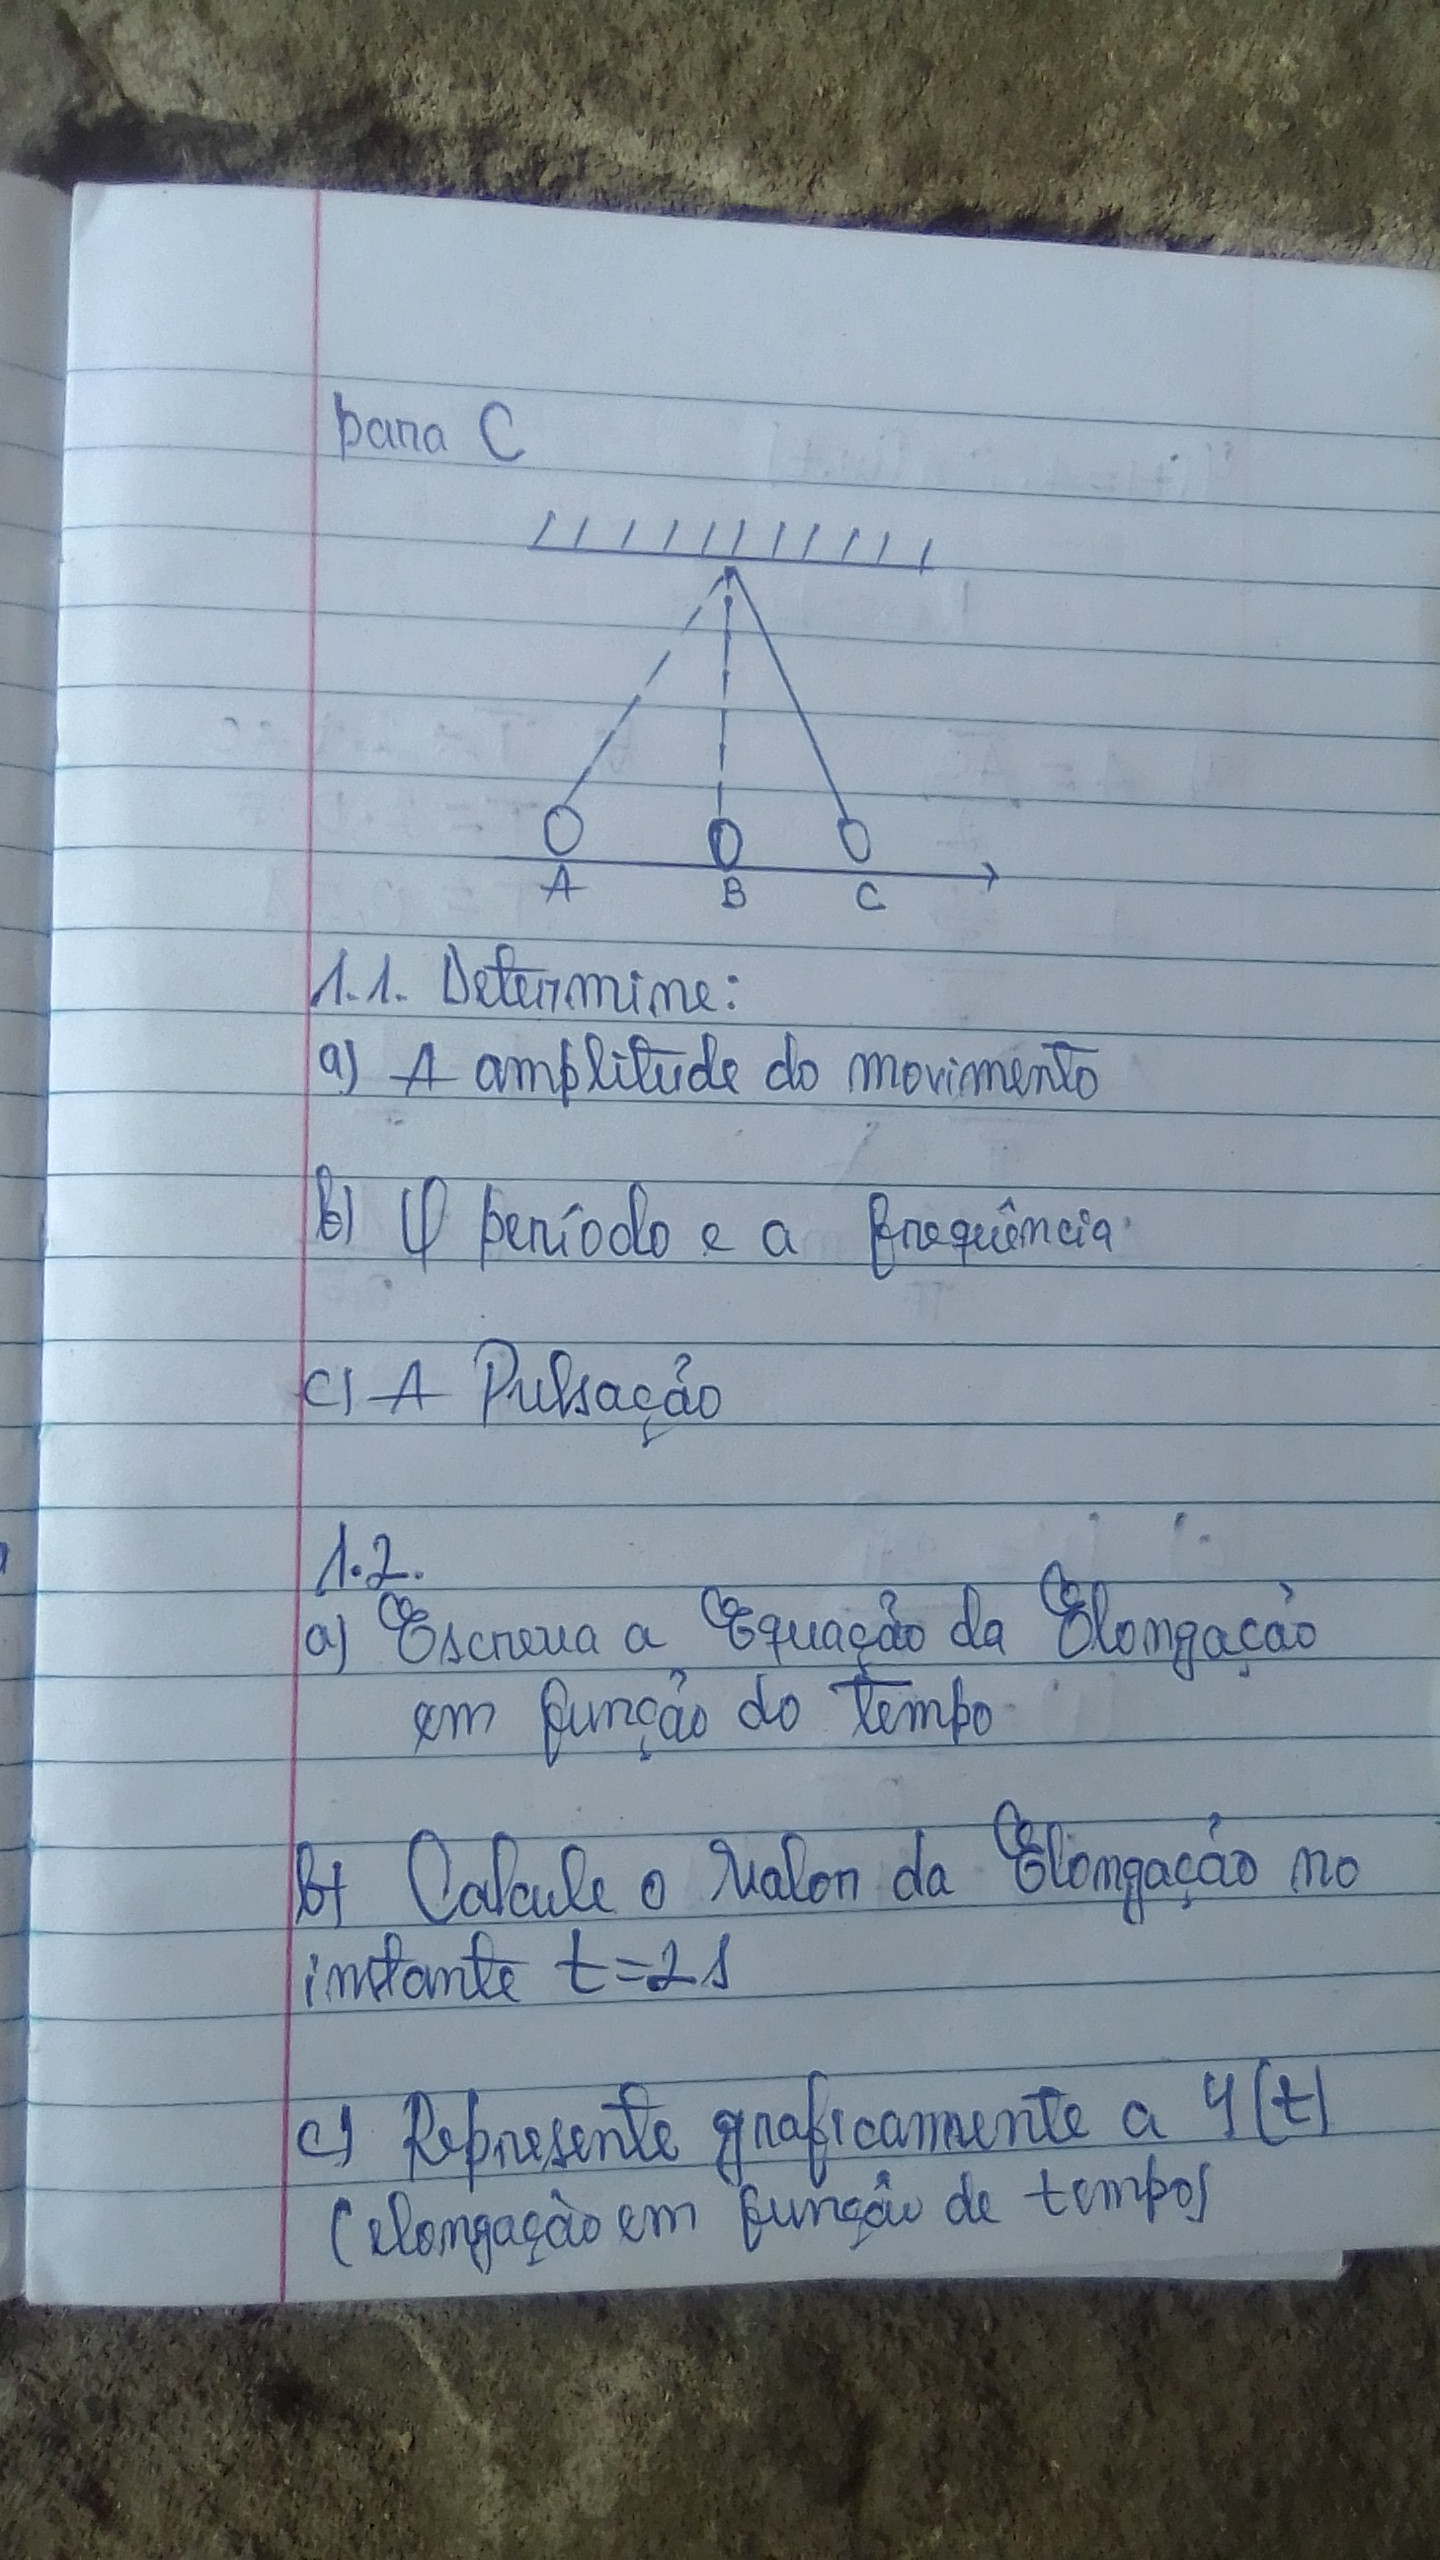 para C
A B C
1.1. Determine:
a) A amplitude do movimento
b) O período e a frequência
c) A Pulsação
1.2.
a) Escreva a Equação da Elongação
em função do tempo
b) Calcule o Valor da Elongação no
instante t=2s
c) Represente graficamente a Y(t)
(elongação em função de tempo)